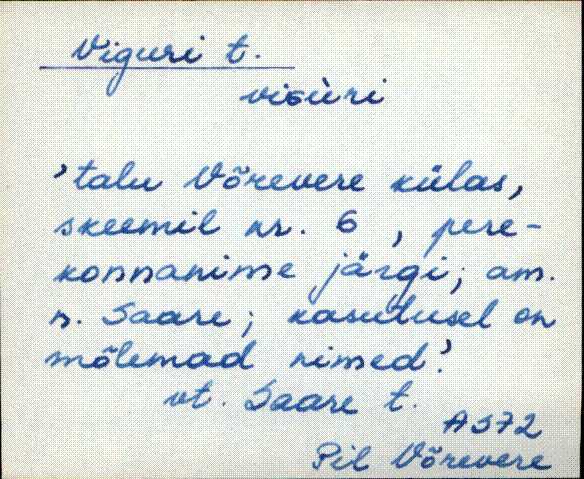 Viguri t.
viGùri
'talu Võrevere külas,
skeemil nr. 6, pere-
konnanime järgi; am.
n. Saare; kasutusel on
mõlemad nimed.'
vt. Saare t.
AS72
Pil Võrevere